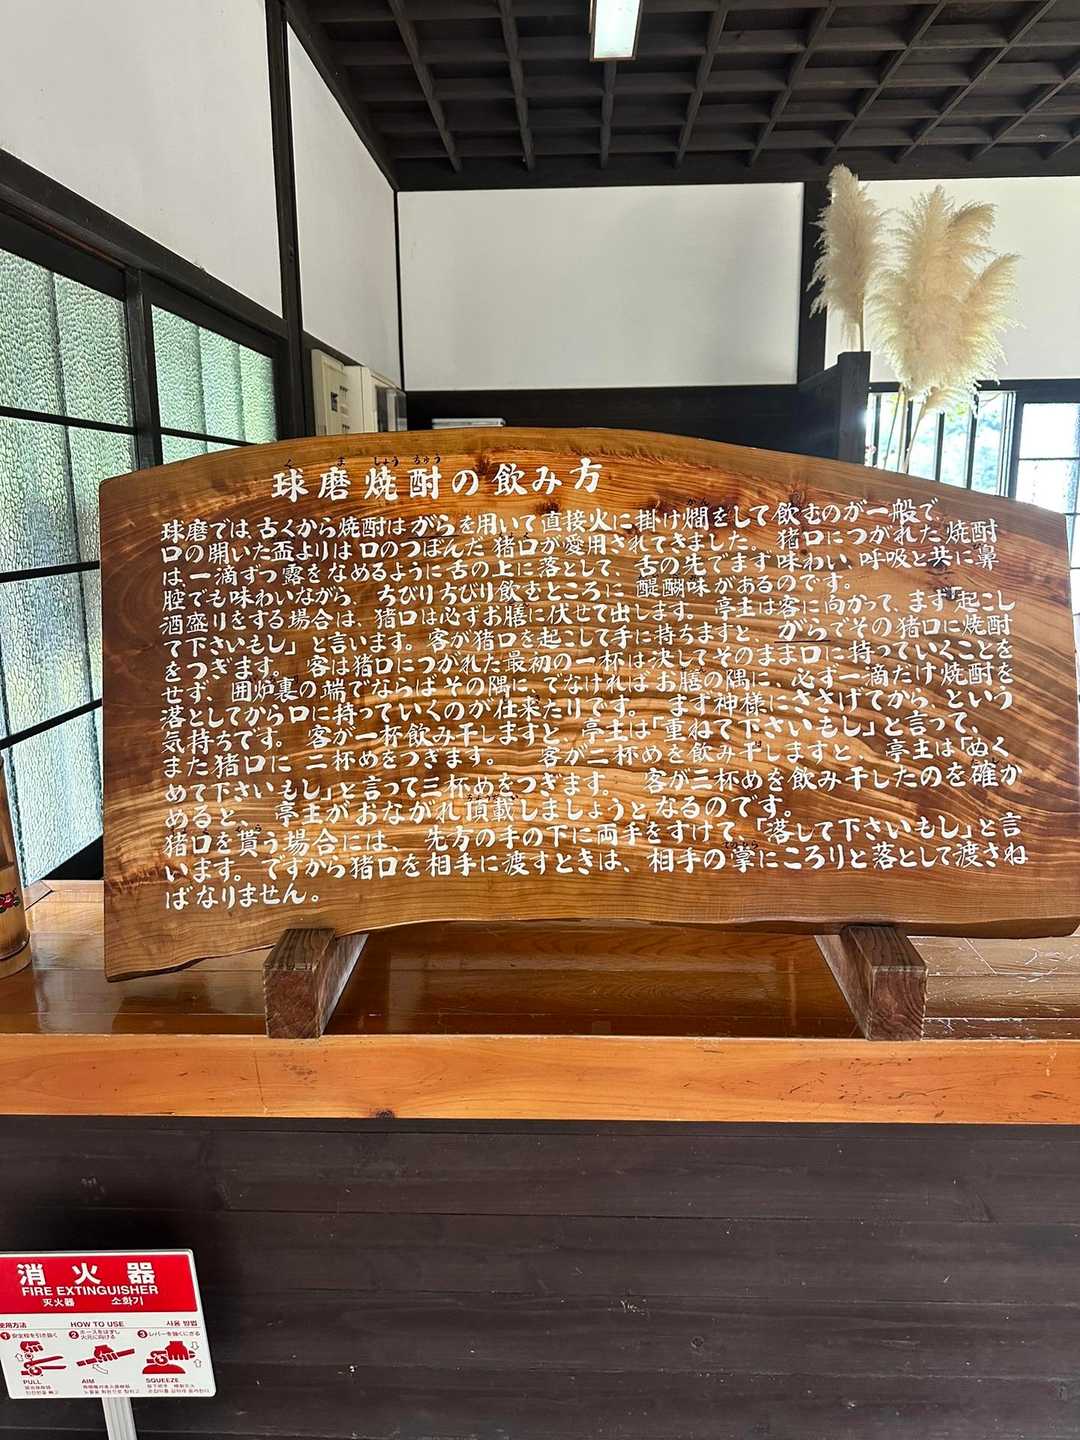 くましょうちゅう
球磨焼酎の飲み方
球磨では、古くから焼酎はがらを用いて直接火に掛け燗をして飲むのが一般で、
口の開いた盃よりは口のつぼんだ猪口が愛用されてきました。猪口につがれた焼酎
は、一滴ずつ露をなめるように舌の上に落として、舌の先でまず味わい、呼吸と共に鼻
腔でも味わいながら、ちびりちびり飲むところに醍醐味があるのです。
酒盛りをする場合は、猪口は必ずお膳に伏せて出します。亭主は客に向かって、まず「起こし
て下さいもし」と言います。客が猪口を起こして手に持ちますと、がらでその猪口に焼酎
をつぎます。客は猪口につがれた最初の一杯は決してそのまま口に持っていくことを
せず、囲炉裏の端でならばその隅に、でなければお膳の隅に、必ず一滴だけ焼酎を
落としてから口に持っていくのが仕来たりです。まず神様にささげてから、という
気持ちです。客が一杯飲み干しますと、亭主は「重ねて下さいもし」と言って、
また猪口に二杯めをつぎます。客が二杯めを飲み干しますと、亭主は「ぬく
めて下さいもし」と言って三杯めをつぎます。客が三杯めを飲み干したのを確か
めると、亭主がおながれ頂載しましょうとなるのです。
猪口を貰う場合には、先方の手の下に両手をすけて、「落して下さいもし」と言
います。ですから猪口を相手に渡すときは、相手の掌にころりと落として渡さね
ばなりません。
消火器
FIRE EXTINGUISHER
灭火器 소화기
使用方法 HOW TO USE 사용 방법
1 安全栓を引き抜く 2 ホースをはずし火元に向ける 3 レバーを強くにぎる
PULL AIM SQUEEZE